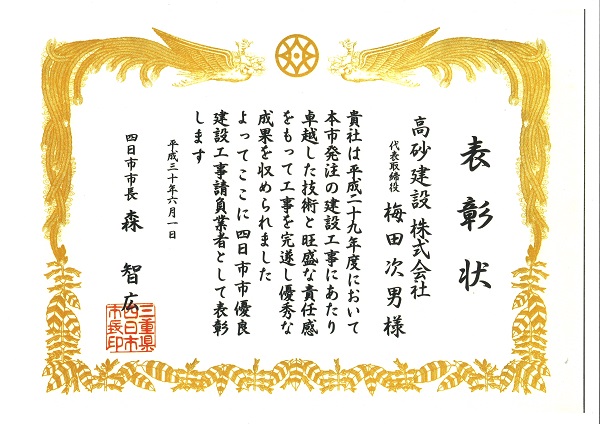 表彰状
高砂建設 株式会社
代表取締役 梅田次男 様
貴社は平成二十九年度において
本市発注の建設工事にあたり
卓越した技術と旺盛な責任感
をもって工事を完遂し優秀な
成果を収められました
よってここに 四日市市優良
建設工事請負業者として表彰
します
平成三十年六月一日
四日市市長 森 智広
三重県
四日市
市長印